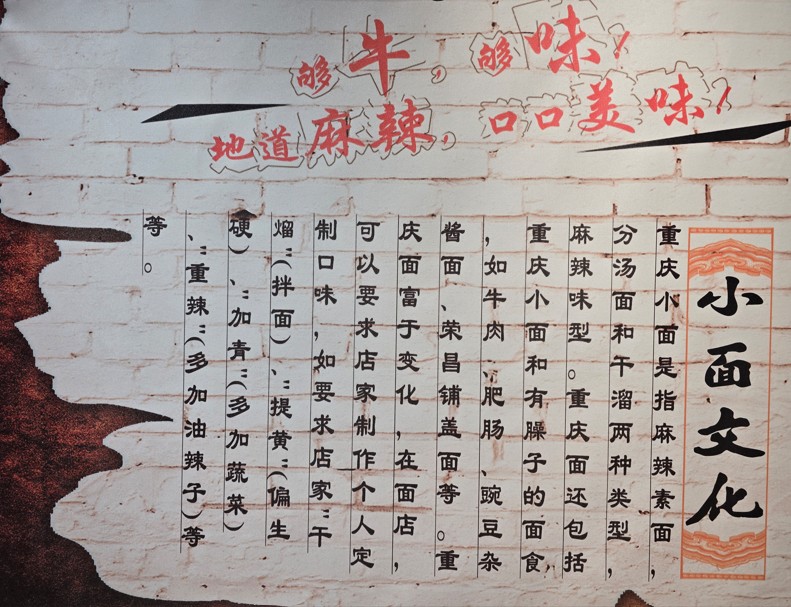 够牛，够味！
地道麻辣，口口美味！
小面文化
重庆小面是指麻辣素面，
分汤面和干溜两种类型，
麻辣味型。重庆面还包括
重庆小面和有臊子的面食
，如牛肉、肥肠、豌豆杂
酱面、荣昌铺盖面等。重
庆面富于变化，在面店，
可以要求店家制作个人定
制口味，如要求店家"干
熘"(拌面)、"提黄"(偏生
硬)、"加青"(多加蔬菜)
、"重辣"(多加油辣子)等
等。